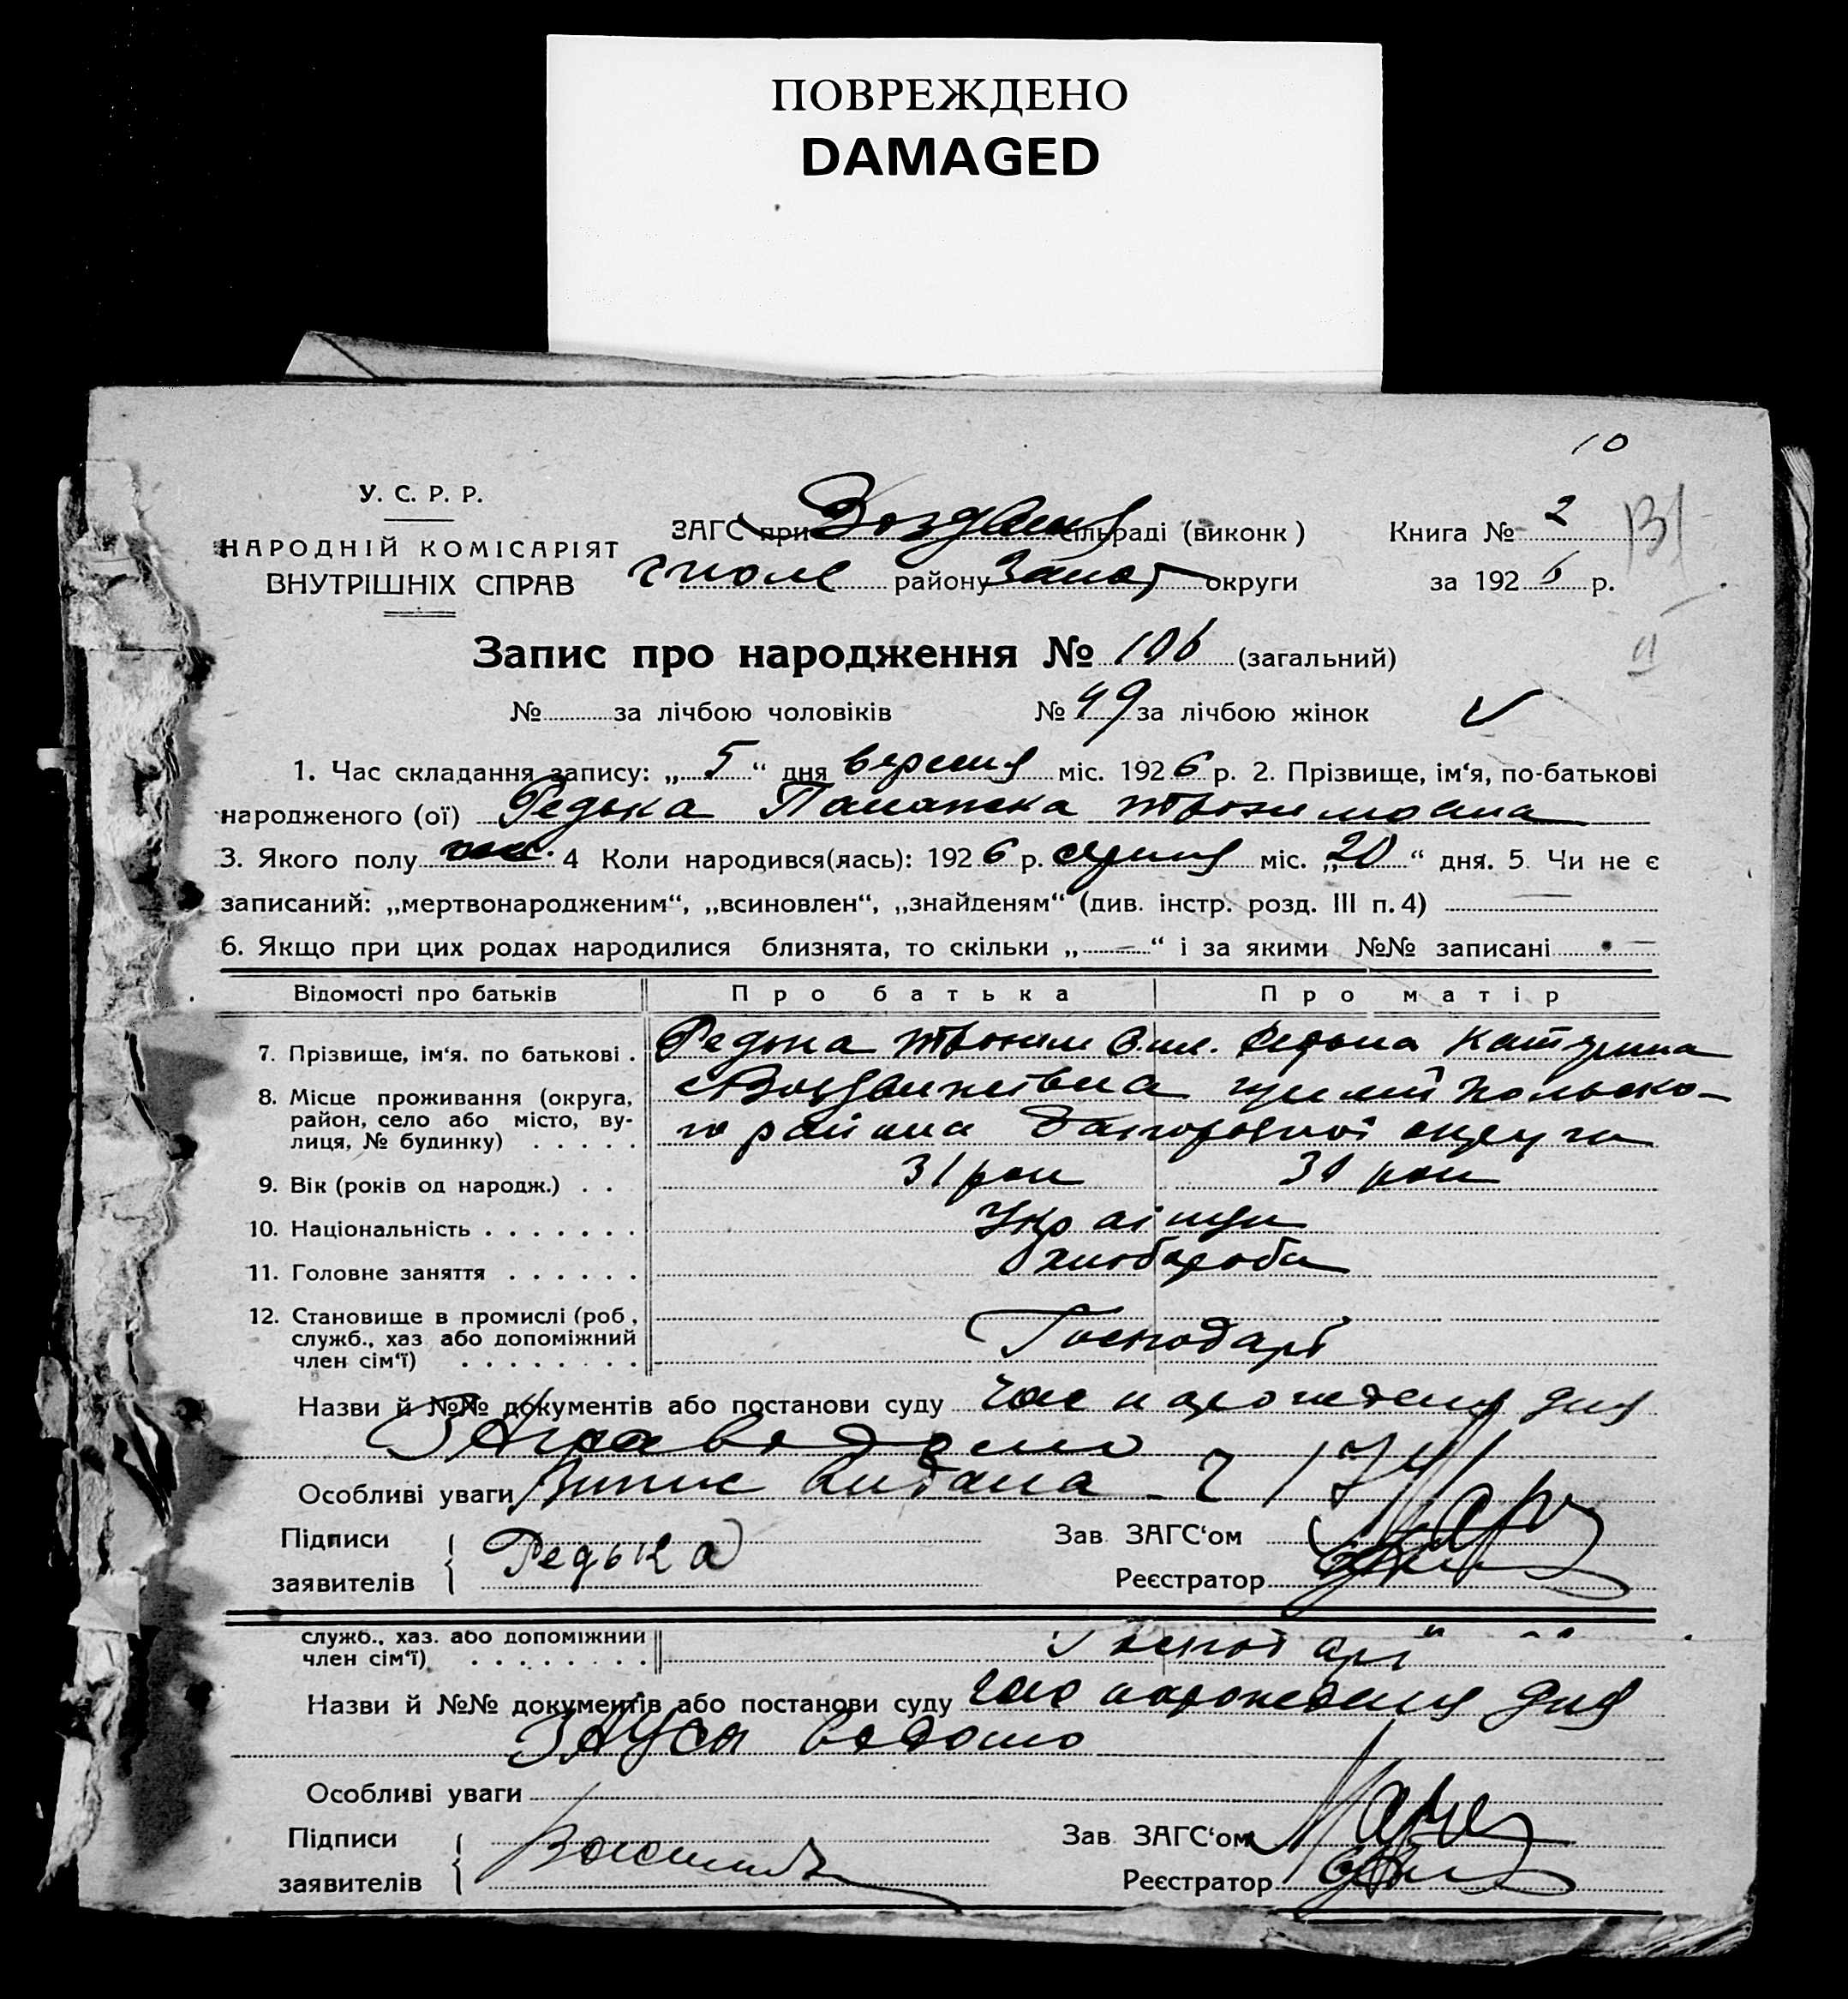 ПОВРЕЖДЕНО
DAMAGED
10
У. С. Р. Р.
НАРОДНІЙ КОМІСАРІЯТ
ВНУТРІШНІХ СПРАВ
ЗАГС при Воздвиж сільраді (виконк) Книга № 2
гполе району Запор округи за 1926 р.
Запис про народження № 106 (загальний)
№ за лічбою чоловіків № 49 за лічбою жінок
1. Час складання запису: „ 5 “ дня вересня міс. 1926 р. 2. Прізвище, ім‘я, по-батькові
народженого (ої) Редька Палажка Трохимовна
3. Якого полу жін. 4 Коли народився(лась): 1926 р. серпня міс. „20“ дня. 5. Чи не є
записаний: „мертвонародженим“, „всиновлен“, „знайденям“ (див. інстр. розд. III п. 4) —
6. Якщо при цих родах народилися близнята, то скільки „ — “ і за якими №№ записані —
Відомості про батьків Про батька Про матір
7. Прізвище, ім‘я. по батькові . Редька Трохим Редька Катерина
8. Місце проживання (округа, Воздвиживка гуляйпольсько-
район, село або місто, ву- го району Запорізької округи
лиця, № будинку) . . . . .
9. Вік (років од народж.) . . 31 рок 30 рок
10. Національність . . . . . . . Українци
11. Головне заняття . . . . . . Хлібороби
12. Становище в промислі (роб,
служб., хаз або допоміжний Господарі
член сім‘ї) . . . . . . . .
Назви й №№ документів або постанови суду Час народження дня
ведомо
Особливі уваги Випис видана
Підписи Зав ЗАГС‘ом
заявителів Редька Реєстратор
служб., хаз. або допоміжний Господарі
член сім‘ї) . . . . . . . .
Назви й №№ документів або постанови суду Час народження дня
ЗАГСЫ ведомо
Особливі уваги
Підписи Зав ЗАГС‘ом
заявителів Реєстратор